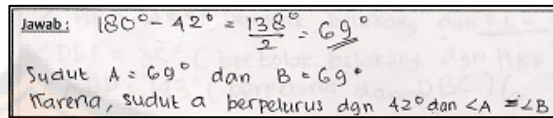 Jawab: 180° - 42° = 138°/2 = 69°
Sudut A = 69° dan B = 69°
Karena, sudut a berpelurus dgn 42° dan <A = <B